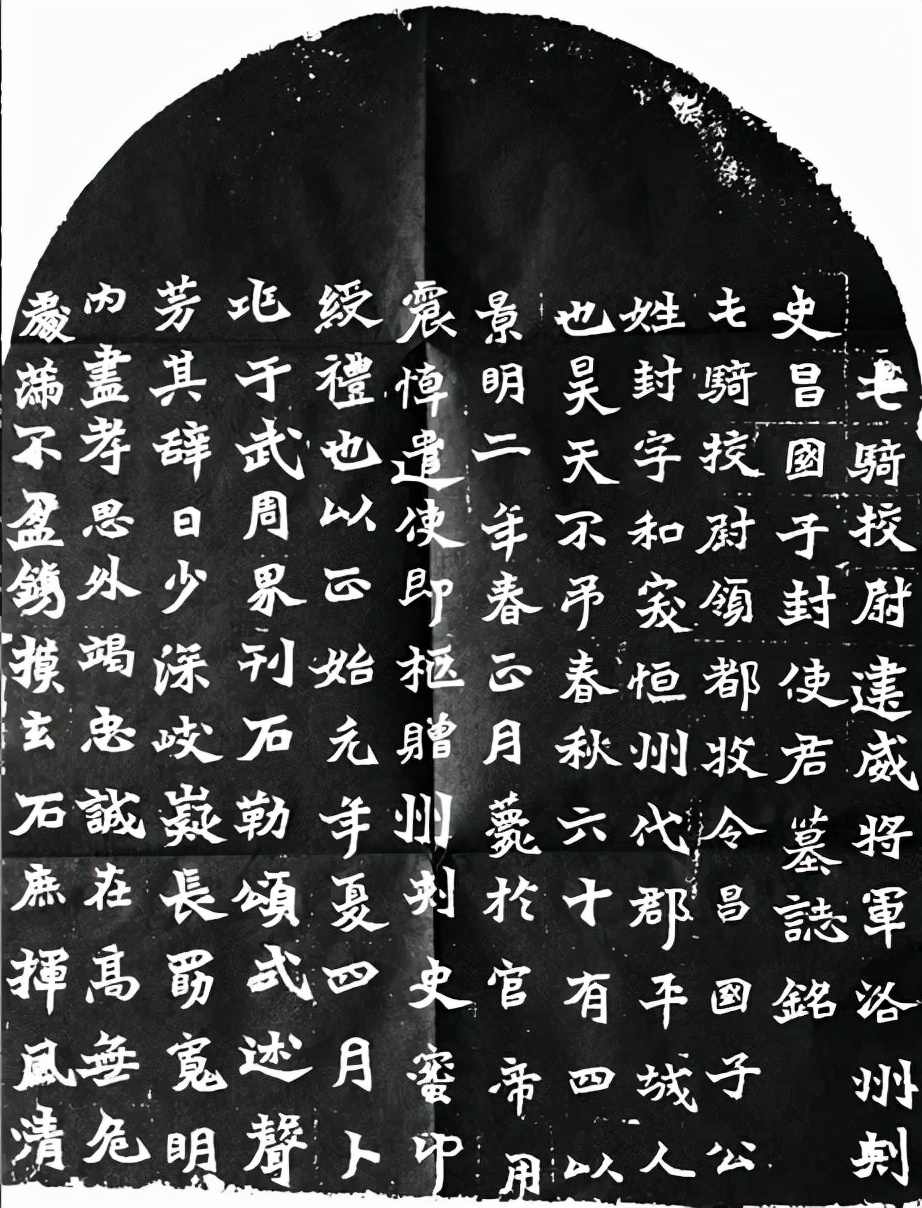 屯騎挍尉建威將軍洛州刾
史昌國子封使君墓誌銘
屯騎挍尉領都牧令昌國子公
姓封字和突恒州代郡平城人
也昊天不弔春秋六十有四以
景明二年春正月薨於官帝用
震悼遣使即柩贈州刾史蜜印
綬禮也以正始元年夏四月卜
兆于武周界刊石勒頌式述聲
芳其辞曰少深岐嶷長勗寬明
内盡孝思外竭忠誠在高無危
處滿不盈鐫摸玄石庶揮風清